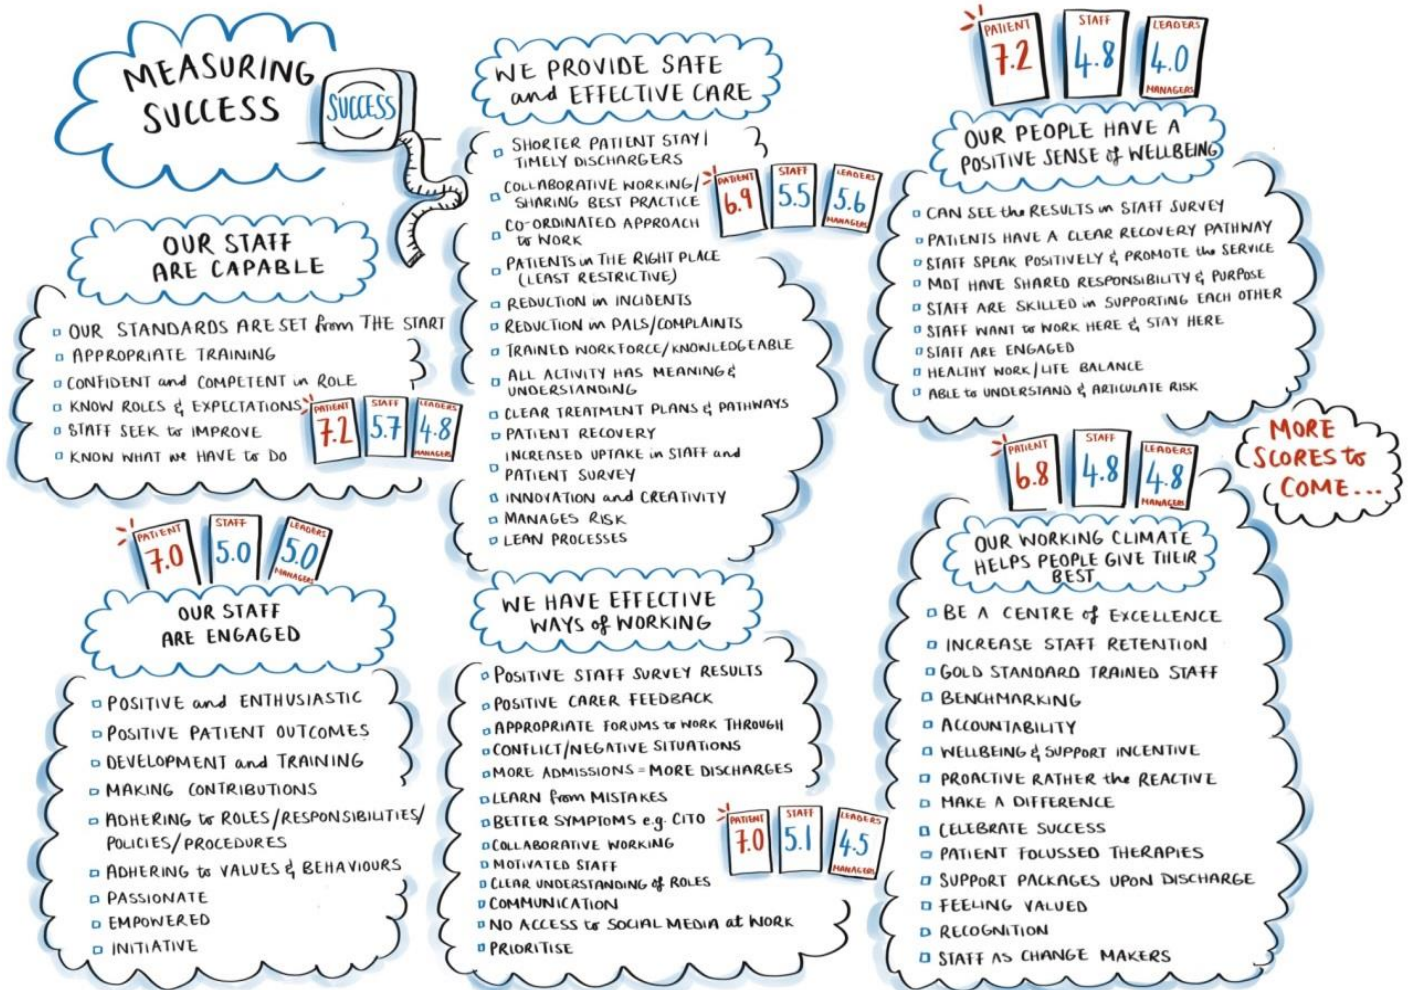 MEASURING
SUCCESS
SUCCESS
OUR STAFF
ARE CAPABLE
OUR STANDARDS ARE SET from THE START
APPROPRIATE TRAINING
CONFIDENT and COMPETENT in ROLE
KNOW ROLES & EXPECTATIONS
STAFF SEEK to IMPROVE
KNOW WHAT we HAVE to DO
PATIENT
7.2
STAFF
5.7
LEADERS
4.8
MANAGERS
PATIENT
7.0
STAFF
5.0
LEADERS
5.0
MANAGERS
OUR STAFF
ARE ENGAGED
POSITIVE and ENTHUSIASTIC
POSITIVE PATIENT OUTCOMES
DEVELOPMENT and TRAINING
MAKING CONTRIBUTIONS
ADHERING to ROLES/RESPONSIBILITIES/
POLICIES/PROCEDURES
ADHERING to VALUES & BEHAVIOURS
PASSIONATE
EMPOWERED
INITIATIVE
WE PROVIDE SAFE
and EFFECTIVE CARE
SHORTER PATIENT STAY/
TIMELY DISCHARGERS
COLLABORATIVE WORKING/
SHARING BEST PRACTICE
CO-ORDINATED APPROACH
to WORK
PATIENTS in THE RIGHT PLACE
(LEAST RESTRICTIVE)
REDUCTION in INCIDENTS
REDUCTION in PALS/COMPLAINTS
TRAINED WORKFORCE/KNOWLEDGEABLE
ALL ACTIVITY HAS MEANING &
UNDERSTANDING
CLEAR TREATMENT PLANS & PATHWAYS
PATIENT RECOVERY
INCREASED UPTAKE in STAFF and
PATIENT SURVEY
INNOVATION and CREATIVITY
MANAGES RISK
LEAN PROCESSES
PATIENT
6.9
STAFF
5.5
LEADERS
5.6
MANAGERS
WE HAVE EFFECTIVE
WAYS of WORKING
POSITIVE STAFF SURVEY RESULTS
POSITIVE CARER FEEDBACK
APPROPRIATE FORUMS to WORK THROUGH
CONFLICT/NEGATIVE SITUATIONS
MORE ADMISSIONS = MORE DISCHARGES
LEARN from MISTAKES
BETTER SYMPTOMS e.g. CITO
COLLABORATIVE WORKING
MOTIVATED STAFF
CLEAR UNDERSTANDING of ROLES
COMMUNICATION
NO ACCESS to SOCIAL MEDIA at WORK
PRIORITISE
PATIENT
7.0
STAFF
5.1
LEADERS
4.5
MANAGERS
PATIENT
7.2
STAFF
4.8
LEADERS
4.0
MANAGERS
OUR PEOPLE HAVE A
POSITIVE SENSE of WELLBEING
CAN SEE the RESULTS in STAFF SURVEY
PATIENTS HAVE A CLEAR RECOVERY PATHWAY
STAFF SPEAK POSITIVELY & PROMOTE the SERVICE
MDT HAVE SHARED RESPONSIBILITY & PURPOSE
STAFF ARE SKILLED in SUPPORTING EACH OTHER
STAFF WANT to WORK HERE & STAY HERE
STAFF ARE ENGAGED
HEALTHY WORK/LIFE BALANCE
ABLE to UNDERSTAND & ARTICULATE RISK
MORE
SCORES to
COME...
PATIENT
6.8
STAFF
4.8
LEADERS
4.8
MANAGERS
OUR WORKING CLIMATE
HELPS PEOPLE GIVE THEIR
BEST
BE A CENTRE of EXCELLENCE
INCREASE STAFF RETENTION
GOLD STANDARD TRAINED STAFF
BENCHMARKING
ACCOUNTABILITY
WELLBEING & SUPPORT INCENTIVE
PROACTIVE RATHER the REACTIVE
MAKE A DIFFERENCE
CELEBRATE SUCCESS
PATIENT FOCUSSED THERAPIES
SUPPORT PACKAGES UPON DISCHARGE
FEELING VALUED
RECOGNITION
STAFF AS CHANGE MAKERS